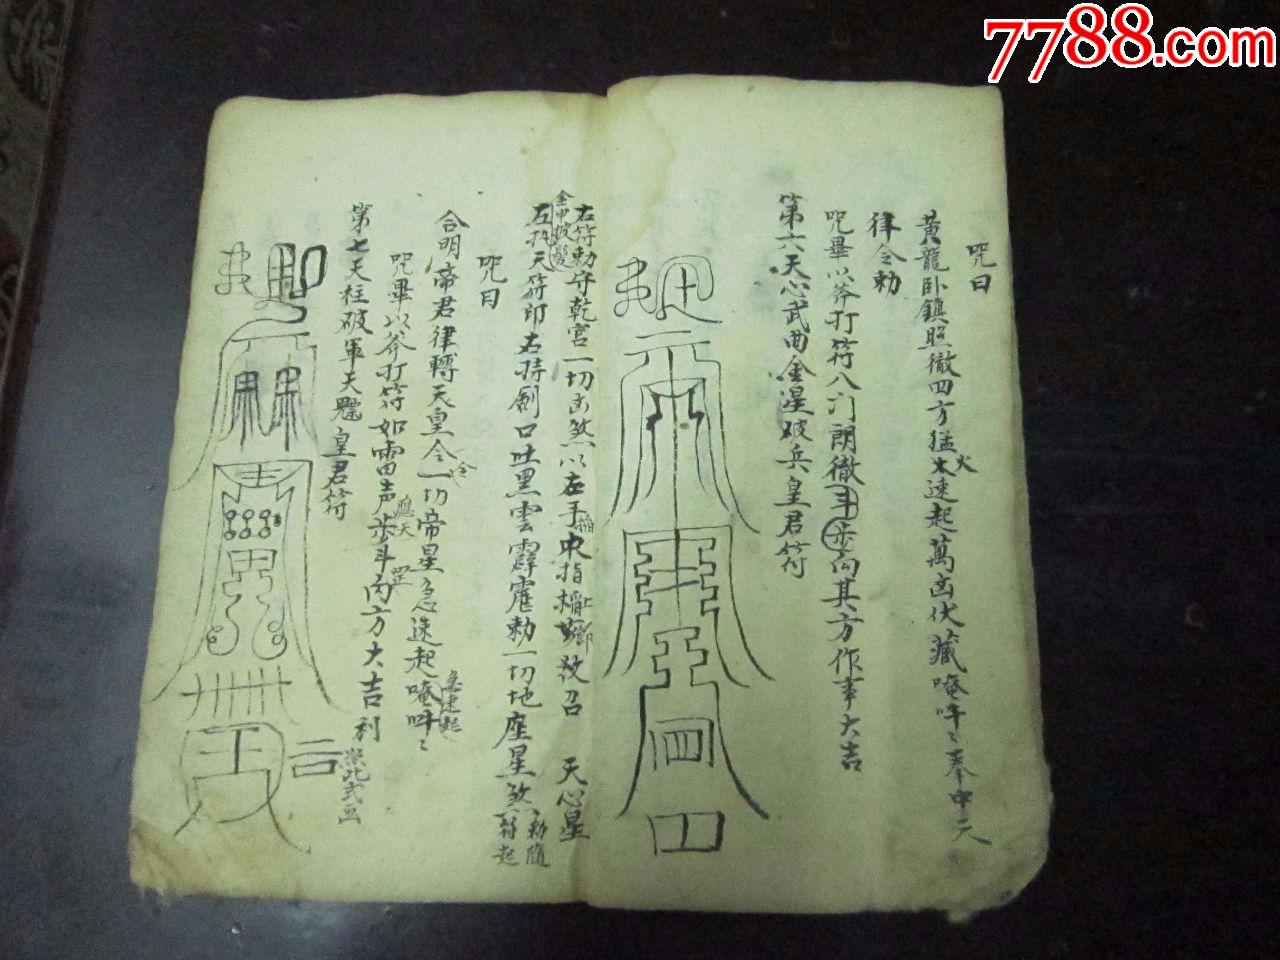 7788.com
咒曰
黃龍卧鎮照徹四方猛火速起萬凶伏藏唵吽吽奉中天
律令勅
咒畢以斧打符八门朗徹斗步向其方作事大吉
第六天心武曲金星破兵皇君符
右符勅守乾宫一切凶煞以左手中指 敕召 天心星
金甲披髮
左执天符印右持劍口吐黑雲霹靂勅一切地座星煞勅隨符起
咒曰
合明帝君律轉天皇令一切帝星急速起唵吽
急速起
咒畢以斧打符如雷声步斗丙方大吉利
應天
罡
第七天柱破軍天 皇君符
照此式画